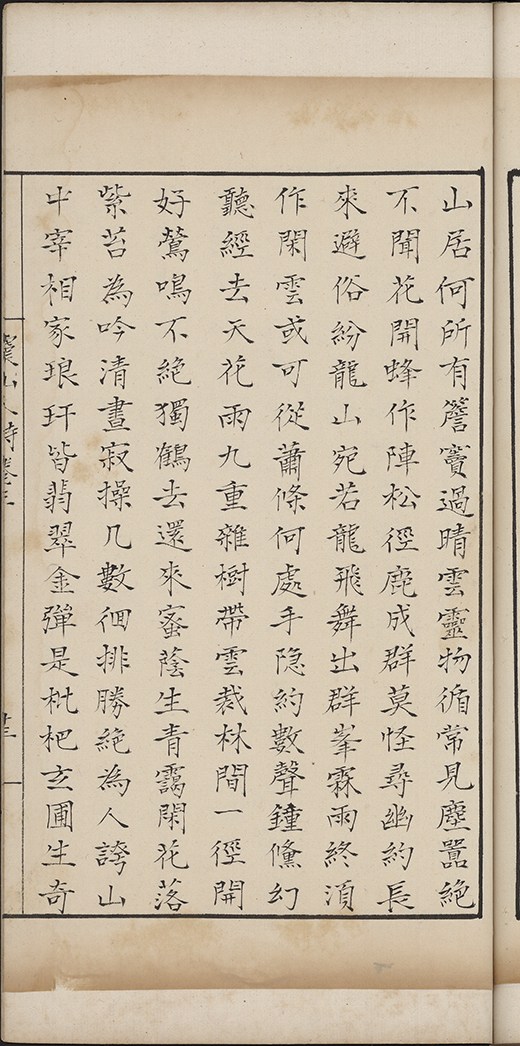 山居何所有簷竇過晴雲靈物循常見塵囂絕
不聞花開蜂作陣松徑鹿成群莫怪尋幽約長
來避俗紛龍山宛若龍飛舞出群峯霖雨終須
作閑雲或可從蕭條何處手隐約數聲鍾儵幻
聽經去天花雨九重雜樹帶雲裁林間一徑開
好鶯鳴不絕獨鶴去還來蜜蔭生青靄閑花落
紫苔為吟清晝寂操几數徊排勝絕為人誇山
中宰相家琅玕皆翡翠金彈是枇杷玄圃生奇
山人詩卷三
廿三